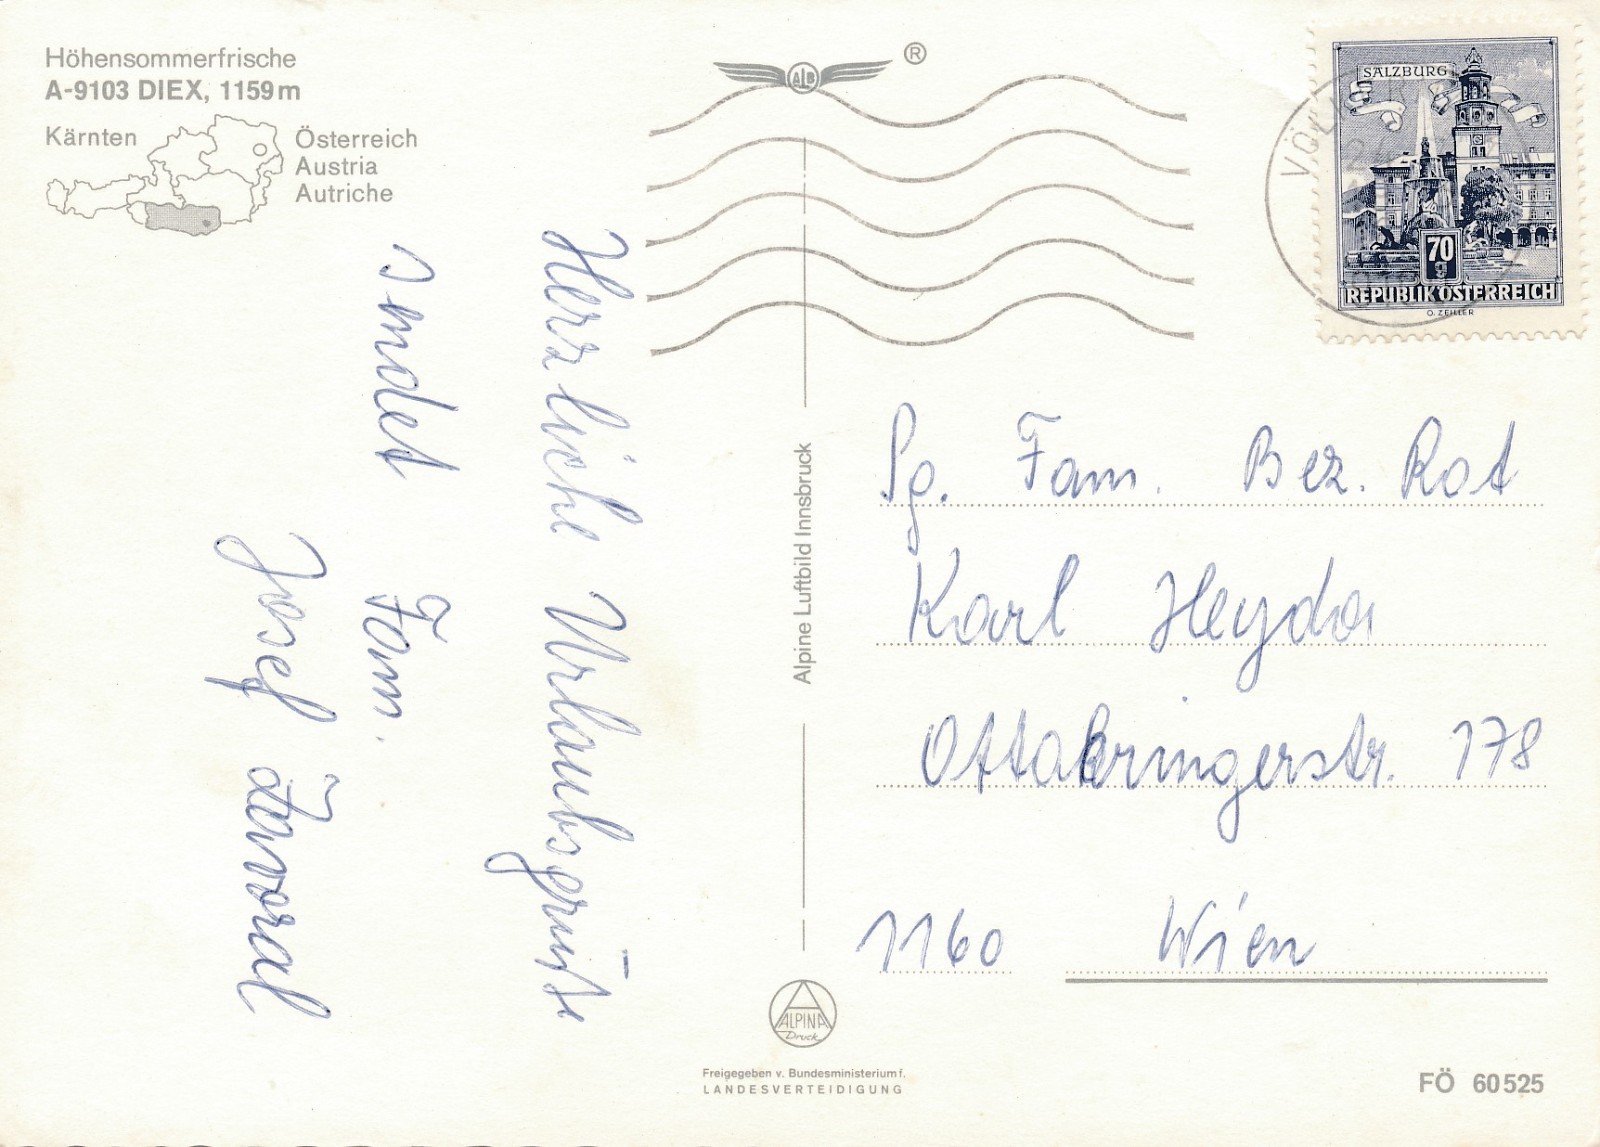 Höhensommerfrische
A-9103 DIEX, 1159m
Kärnten
Österreich
Austria
Autriche
ALB
®
SALZBURG
70
g
REPUBLIK ÖSTERREICH
O. ZEILLER
Herzliche Urlaubsgrüße
sendet Fam.
Josef Zavoral
Alpine Luftbild Innsbruck
Sg. Fam. Bez. Rat
Karl Heyda
Ottakringerstr. 178
1160 Wien
ALPINA
Druck
Freigegeben v. Bundesministerium f.
LANDESVERTEIDIGUNG
FÖ 60525